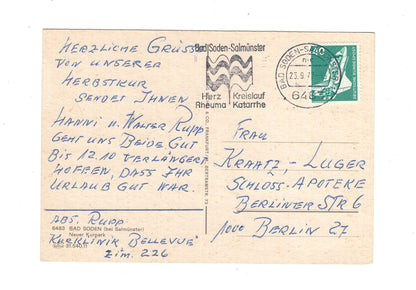 HERZLICHE GRÜSSE
VON UNSERER
HERBSTKUR
SENDET IHNEN
HANNI u. WALTER RUPP
GEHT UNS BEIDE GUT
BIS 12.10 VERLÄNGERT
HOFFEN, DASS IHR
URLAUB GUT WAR.
ABS. RUPP
6483 BAD SODEN (bei Salmünster)
Neuer Kurpark
KURKLINIK BELLEVUE
Zim. 226
Bad Soden-Salmünster
Herz Kreislauf
Rheuma Katarrhe
BAD SODEN-SALMÜNSTER
23.9.7
FRAU
KRAATZ-LUGER
SCHLOSS-APOTEKE
BERLINER STR 6
1000 BERLIN 27